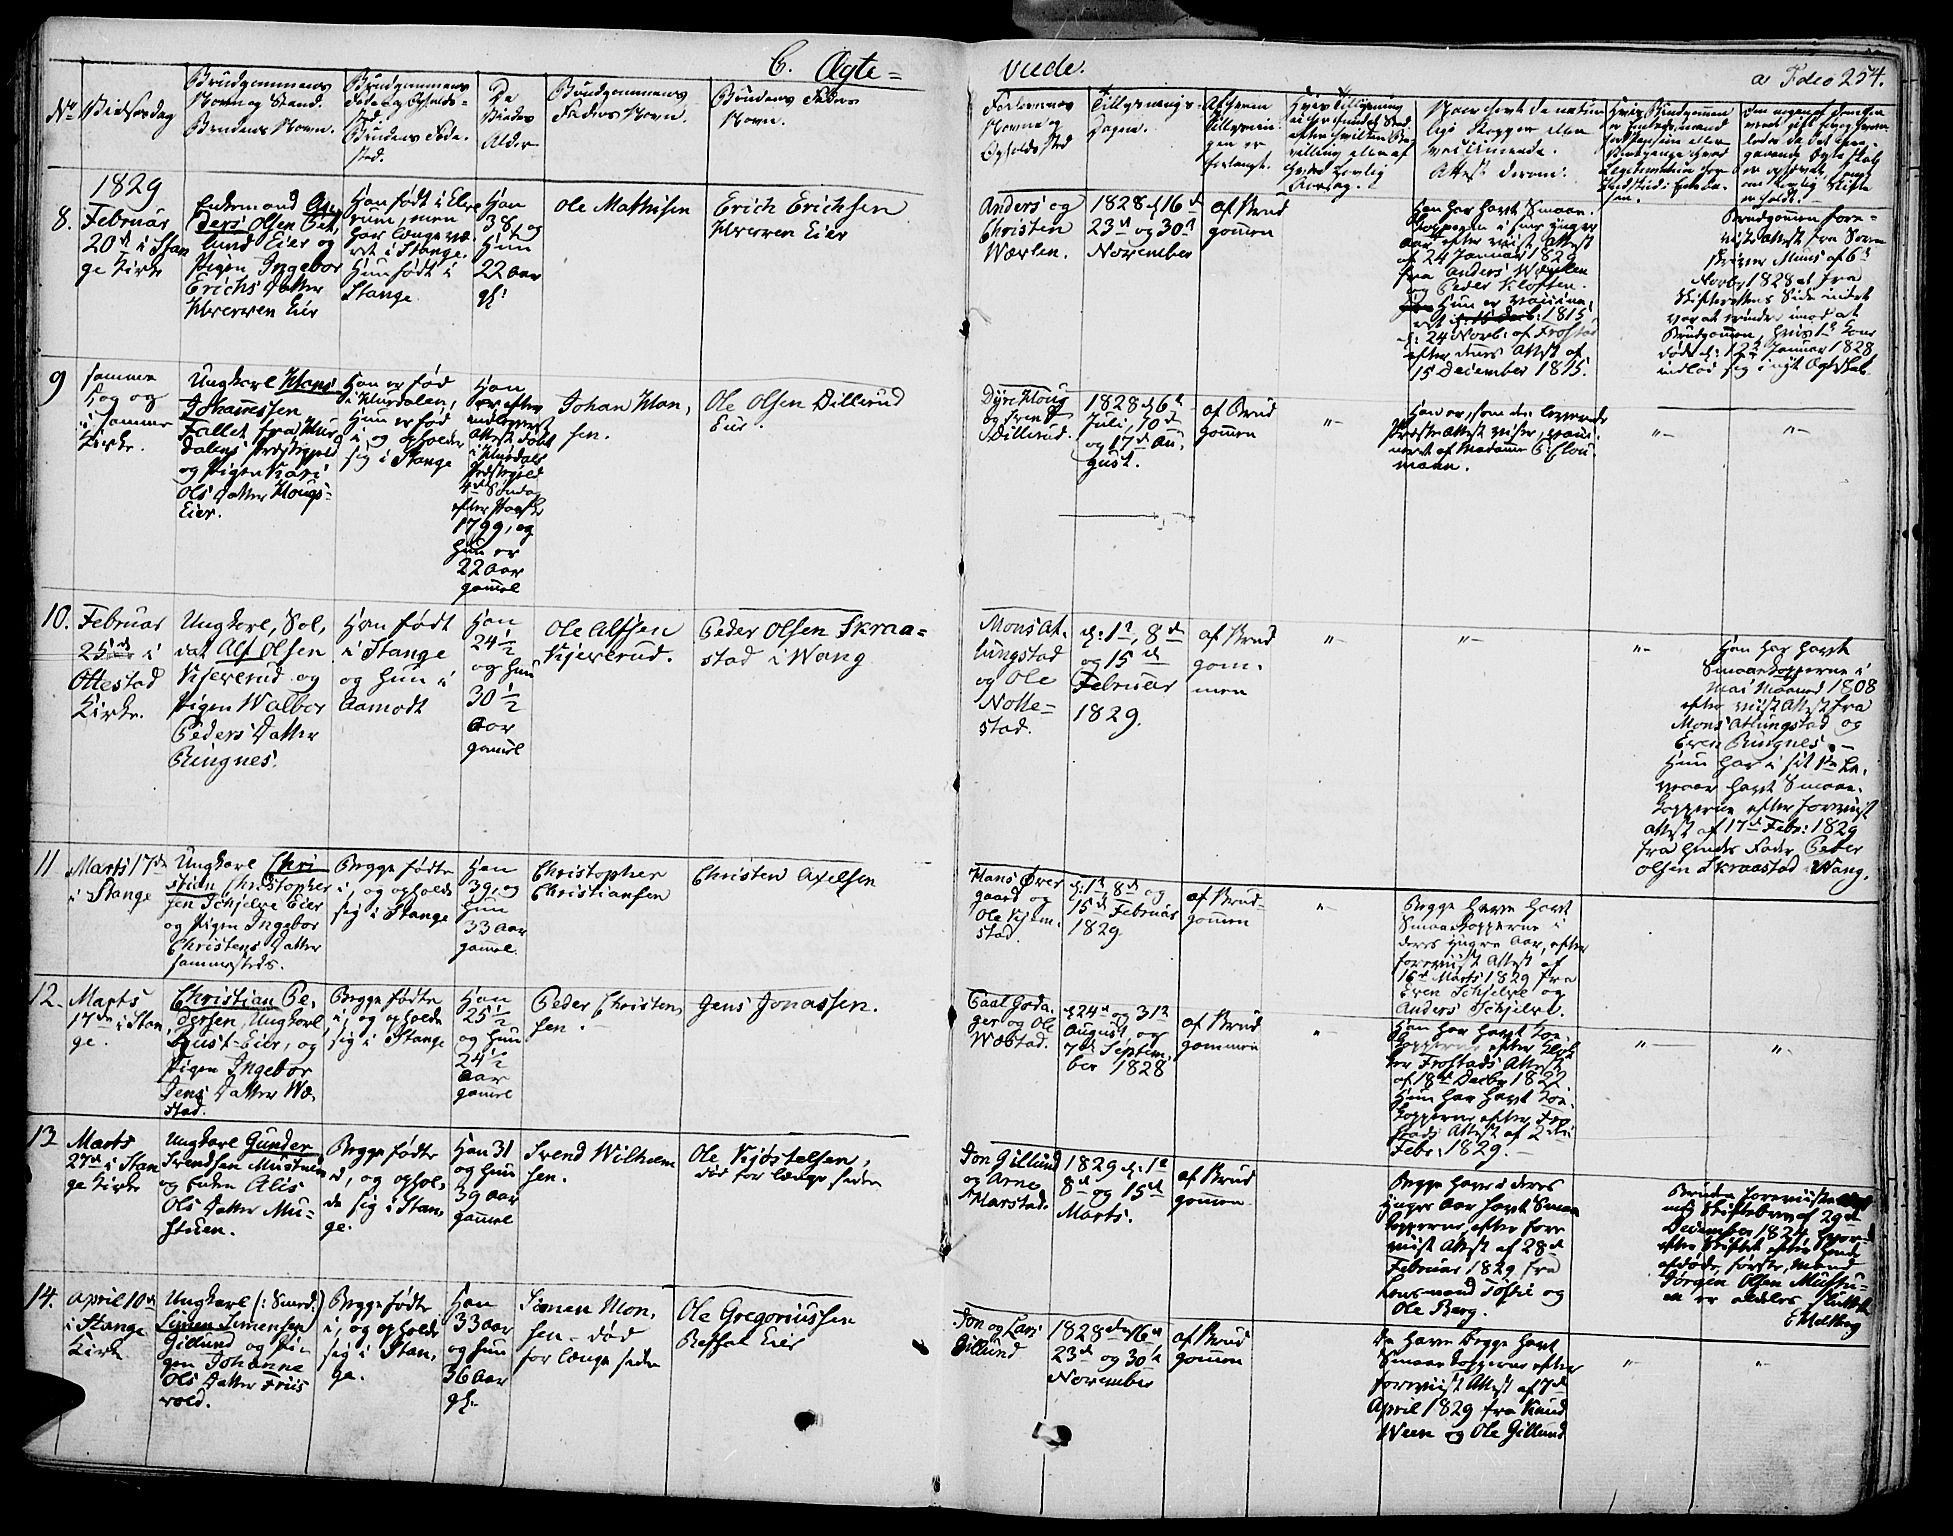 C. Ægte=
viede.
a Folio 254.
No
Vielsesdag
Brudgommens
Navn og Stand.
Brudens Navn.
Brudgommens
Fødeog Opholds-
sted.
Brudens Føde-
sted.
De
Viedes
Alder
Brudgommens
Faders Navn.
Brudens Faders
Navn.
Forlovernes
Navne og
Opholdssted
Tillysnings-
dagene.
Af hvem
Tillysnin-
gen er
forlangt.
1829
8.
Februar
20de i Stan
ge Kirke
Enkemand An
ders Olsen
lund Eier og
Pigen Ingebor
Erichs Datter
Hverven Eier
Han født i Elve
rum, men
har længe væ
ret i Stange.
Hun født i
Stange
Han
38, og
Hun
22 Aar
gl:
Ole Mathisen
Erich Erichsen
Hverven Eier
Anders og
Christen
Wæxlen.
1828 d: 16de
23de og 30te
November
af Brud
gommen
Han har havt Smaae
Kopperne i sine yngre
Aar efter viist Attest
af 24 Januar 1829
fra Anders Wæxlen
og Peder Kloften.
Hun er vaccine-
ret 1815
d: 24 Novb: af Frostad
efter dens Attest af
15 December 1815.
Brudgomen fore-
viste Attest fra Soren
skriver Muus af 6te
Novbr 1828 at fra
Skifterettens Side intet
var at erindre imod at
Brudgomen, hvis 1te Kone
døde d: 12te Januar 1828
indlod sig i nyt Ægteskab.
9
samme
Dag og
i samme
Kirke.
Ungkarl Hans
Johannessen
Fallet fra Hur
dalens Præstegjeld
og Pigen Kari
Ols Datter Hougs-
Eier.
Han er fød
i Hurdalen,
Hun er fød
i, og opholder
sig i Stange
Han
er efter
indleveret
Attest døbt
i Hurdals
Præstegjeld
4de Søndag
efter Paaske
1799, og
hun er
22 Aar
gammel
Johan Han,
sen.
Ole Olsen Dillerud
Eier.
Dyre Houg
og Svend
Dillerud.
1828 d: 6te
Juli, 10de
og 17de Au,
gust.
af Brud
gommen
"
Han er, som den leverede
Præste Attest viser, vacci-
neret af Madamme C: Clou-
mann.
"
"
10.
Februar
25de i
Ottestad
Kirke.
Ungkarl, Sol,
dat Alf Olsen
Kjeverud og
Pigen Walbor
Peders Datter
Ringnes.
Han født
i Stange
og Hun i
Aamodt
Han
24 1/2
og hun
30 1/2
Aar
gamel
Ole Alfsen
Kjeverud.
Peder Olsen Skraa=
stad i Wang
Mons At-
lungstad
og Ole
Notte-
stad.
d: 1te, 8de
og 15de
Februar
1829.
af Brud
gom-
men
"
"
"
Han har havt
Smaae Kopperne i
Mai Maaned 1808
efter viist Attest fra
Mons Atlungstad og
Even Ringnes. —
Hun har i sit 1ste Le,
veaar havt Smaae-
kopperne efter foreviist
Attest af 17de Febr: 1829
fra hendes Fader Peder
Olsen Skraastad i Wang.
11
Marts 17de
i Stange
Ungkarl Chri
stian Christopher
sen Schjelve Eier
og Pigen Ingebor
Christens Datter
sammesteds.
Begge fødte
i, og opholde
sig i Stange
Han
39, og
Hun
33 Aar
gamel.
Christopher
Christiansen
Christen Axelsen
Hans Øver
gaard og
Ole Kjem-
stad.
d: 1te, 8de og
15de Februar
1829
af Brud-
gommen
"
Begge have havt
Smaae Kopperne i
deres yngre Aar, efter
foreviist Attest af
16de Marts 1829 fra
Even Schjelve og
Anders Schjelve.
12.
Marts
17de i Stan,
ge.
Christian Pe,
dersen, Ungkarl
Eier, og
Pigen Ingebor
Jens Datter Wæ
stad.
Begge fødte
i, og opholde
sig i Stange
Han
25 1/2
og Hun
24 1/2
Aar
gamel
Peder Christen,
sen.
Jens Jonassen.
Paal Goda,
ger og Ole
Wæstad.
d 24de og 31te
August og
7de Septem,
ber 1828
af Brud
gommen
"
Han har havt Koe-
kopperne efter
Frostads Attest
af 18de Decbr 1822
Hun har havt Koe-
kopperne efter Fro
stads Attest af 2den
Febr: 1829. —
"
"
13
Marts
27de i Stan
ge Kirke
Ungkarl Gunder
Svendsen Mustuen
og Enken Alis
Ols Datter Mu-
stuen.
Begge fødte
i, og ophol-
de sig i Stan,
ge.
Han 31
og Hun
39 Aar
gammel
Svend Wilhelm
sen.
Ole Kjøstelsen,
død for længe siden
Jon Gillund
og Arne
Marstad.
1829 d: 1te
8de og 15de
Marts.
af Brud
gommen
Begge have i deres
yngre Aar havt Smaae
kopperne efter fore
viist Attest af 28de
Februar 1829 fra
Lensmand Tøftie og
Ole Berg.
Bruden foreviiste
Skiftebrev af 29de
December 1824, hvor-
efter Skiftet efter hendes
afdøde første Mand
Jørgen Olsen Mustu-
en er aldeles sluttet
14.
April 10de
i Stange
Kirke
Ungkarl (: Smed:)
Simen Simensen
Gillund og Pi-
gen Johanne
Ols Datter Friis
vold.
Begge fødte
i, og opholde
sig i Stan,
ge.
Han
33 Aar
og Hun
36 Aar
gl.
Simen Mon,
sen - død
for længe siden
Ole Gregoriussen
Eier
Jon og Lars
Gillund
1828 d. 16de
23de og 30te
November
af Brud
gommen
De have begge havt
Smaae Kopperne efter
foreviist Attest af 7de
April 1829 fra Knud
Ween og Ole Gillund
"
"